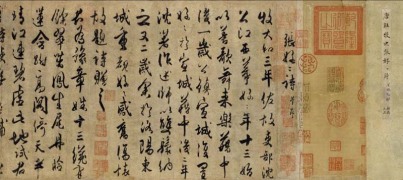 張好好詩并序
牧大和三年佐故吏部沈
公江西幕好好年十三始
以善歌來樂籍中
後一歲公鎮宣城復置好
好於宣城籍中後二年
沈著作述師以雙鬟納
之又二歲余於洛陽東
城重覩好好感舊傷懷
故題詩贈之
君為豫章姝十三纔有
餘翠茁鳳生尾丹臉
蓮含跗高閣倚天半
晴江連碧虛此地試君